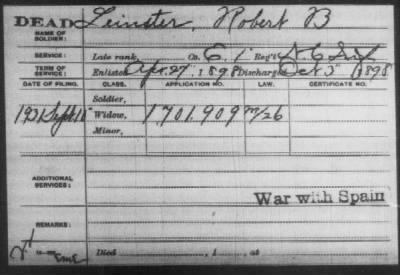 DEAD Leinster, Robert B
NAME OF SOLDIER:
SERVICE: Late rank, Co. C. 1" Reg't N.C. Inf
TERM OF SERVICE: Enlisted Apr. 27", 1898 Discharged Oct 5", 1898
DATE OF FILING. CLASS. APPLICATION NO. LAW. CERTIFICATE NO.
Soldier,
1921 Sept. 15" Widow, 1.701.909 m/26
Minor,
ADDITIONAL SERVICES:
War with Spain
REMARKS:
Died, 1, at